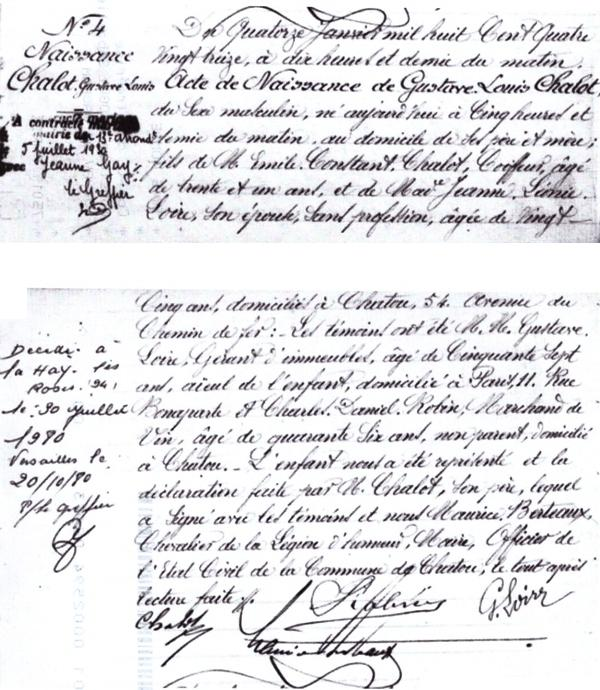 N° 4
Naissance
Chalot, Gustave Louis
A contracté mariage
mairie du 13e arrond
5 juillet 19
avec Jeanne Gay
Le Greffier
Du Quatorze Janvier mil huit Cent Quatre
Vingt treize, à dix heures et demie du matin.
Acte de Naissance de Gustave Louis Chalot,
du Sexe masculin, né aujourd'hui à Cinq heures et
demie du matin, au domicile de ses père et mère;
fils de M. Emile Constant Chalot, Coiffeur, âgé
de trente et un ans, et de Made Jeanne Léonie
Loire, son épouse, sans profession, âgée de Vingt-
Cinq ans, domiciliés à Chatou, 54 Avenue du
Chemin de fer: Les témoins ont été M. M. Gustave
Loire, Gérant d'immeubles, âgé de Cinquante Sept
ans, aïeul de l'enfant, domicilié à Paris, 11 Rue
Bonaparte et Charles Daniel Robin, Marchand de
Vin, âgé de quarante Six ans, non parent, domicilié
à Chatou. _ L'enfant nous a été représenté et la
déclaration faite par M. Chalot, son père, lequel
a Signé avec les témoins et nous Maurice Berteaux,
Chevalier de la Légion d'honneur, Maire, Officier de
l'Etat Civil de la Commune de Chatou, le tout après
lecture faite.
Chalot
G. Loire
Décédé à
la Hay les
Roses 94
le: 20 juillet
1980
Versailles le
20/10/80
P/Le greffier